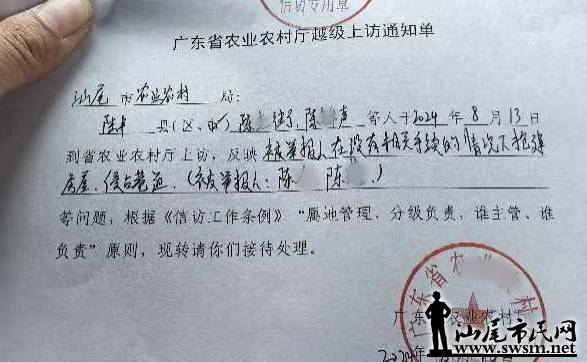 信访专用章
广东省农业农村厅越级上访通知单
汕尾市农业农村局:
陆丰县(区、市)陈 陈 声等人于2024年8月13日
到省农业农村厅上访,反映被举报人在没有相关手续的情况下抢建
房屋、侵占巷道。(被举报人:陈 陈 )
等问题,根据《信访工作条例》“属地管理、分级负责,谁主管、谁
负责”原则,现转请你们接待处理。
广东省农 村
广东 农业农村
2024年
汕尾市民网
www.swsm.net